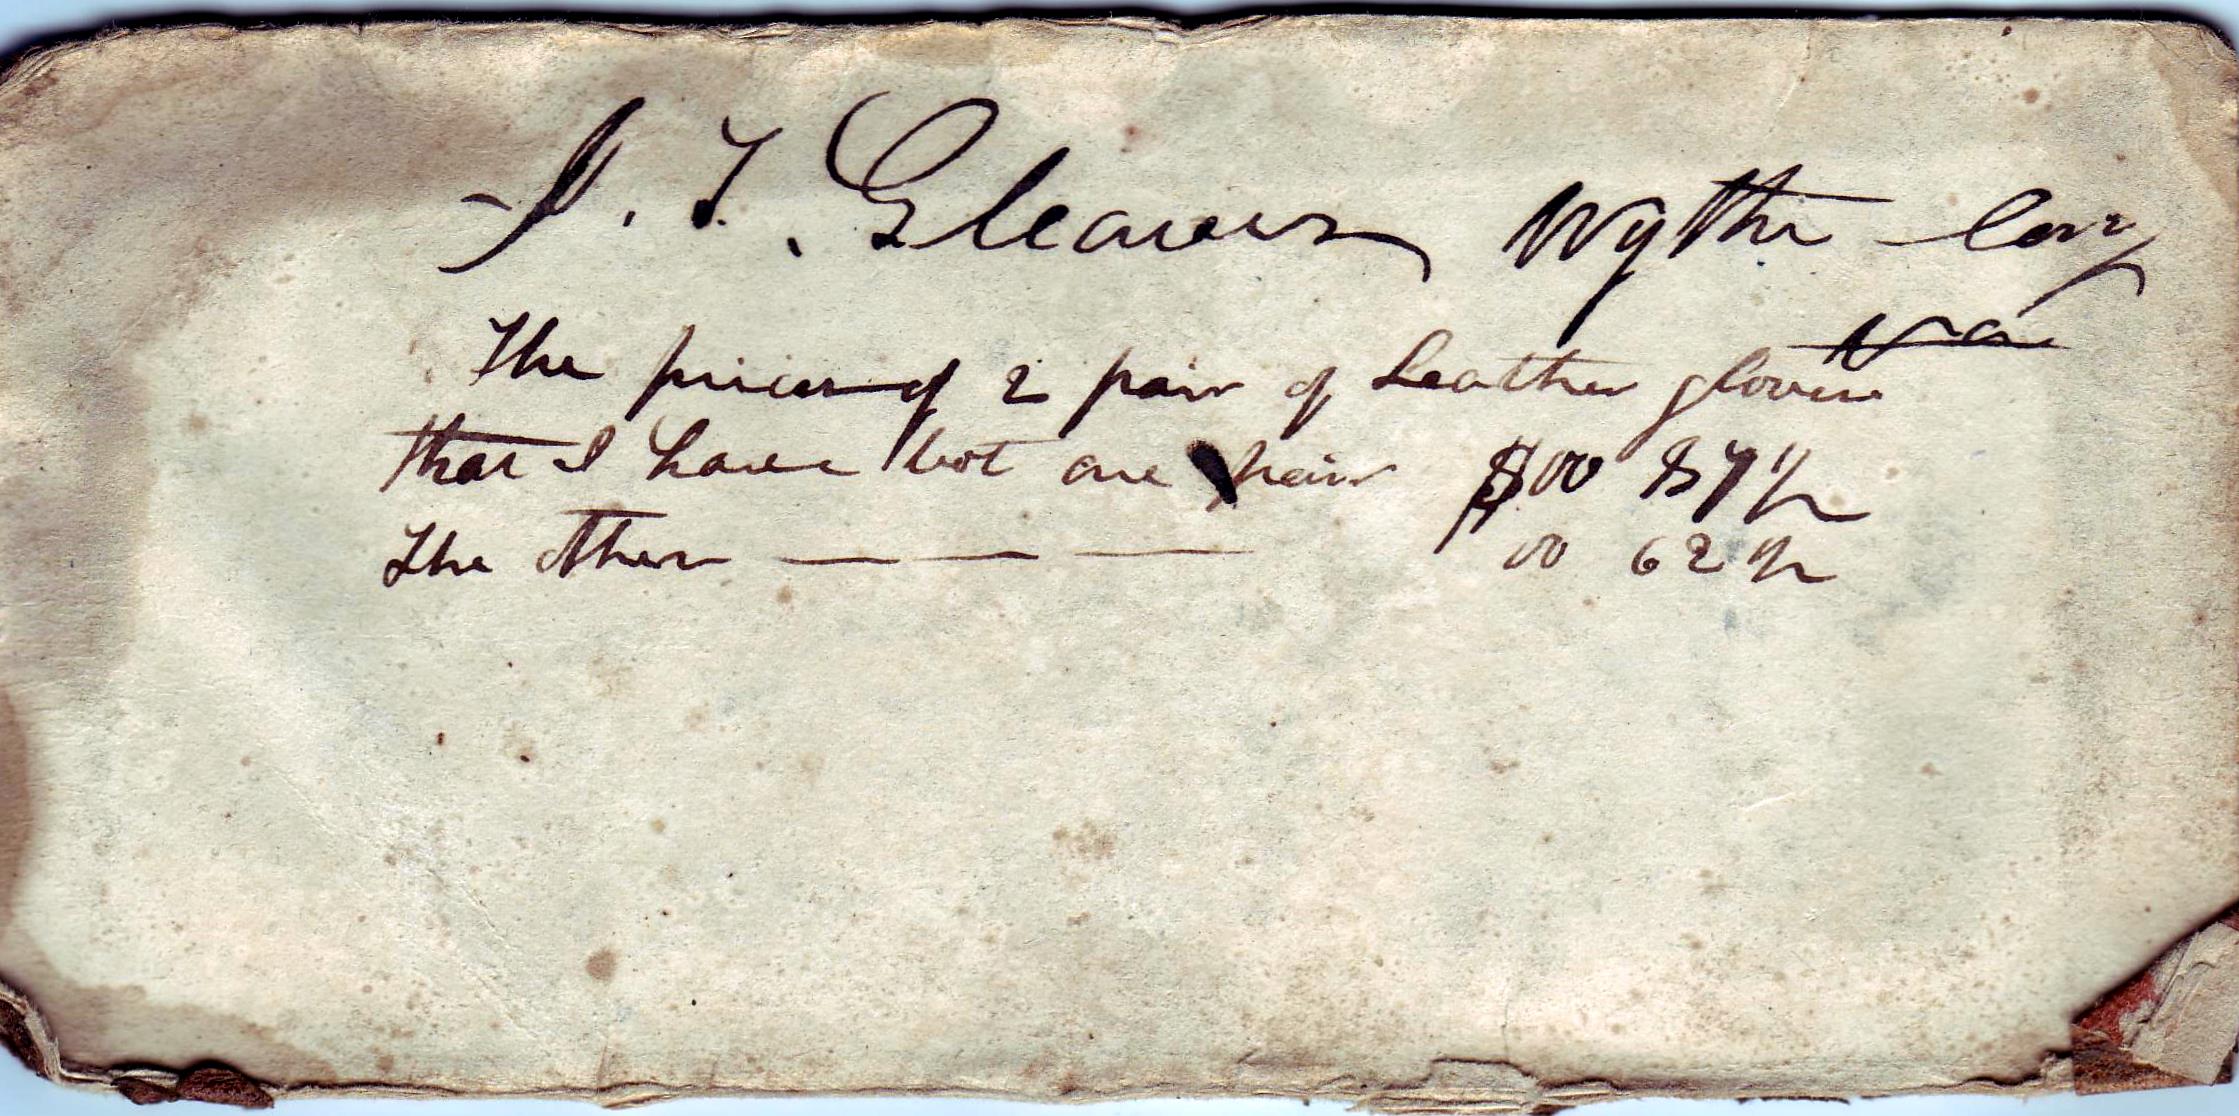 I. T. Gleaves Wythe Couy
Va
The prices of 2 pair of Leather gloves
that I have bot one pair $00 87½
The other — — — 00 62½